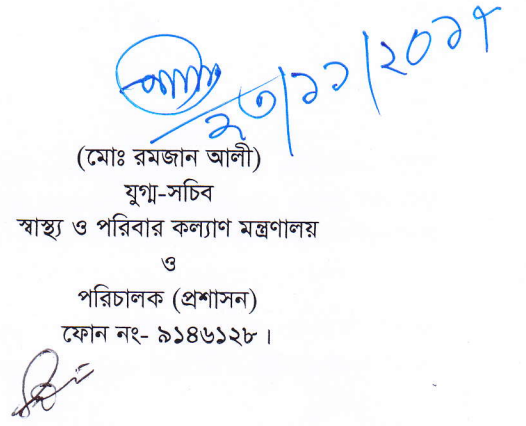 ২৩/১১/২০১৭
(মোঃ রমজান আলী)
যুগ্ম-সচিব
স্বাস্থ্য ও পরিবার কল্যাণ মন্ত্রণালয়
ও
পরিচালক (প্রশাসন)
ফোন নং- ৯১৪৬১২৮।